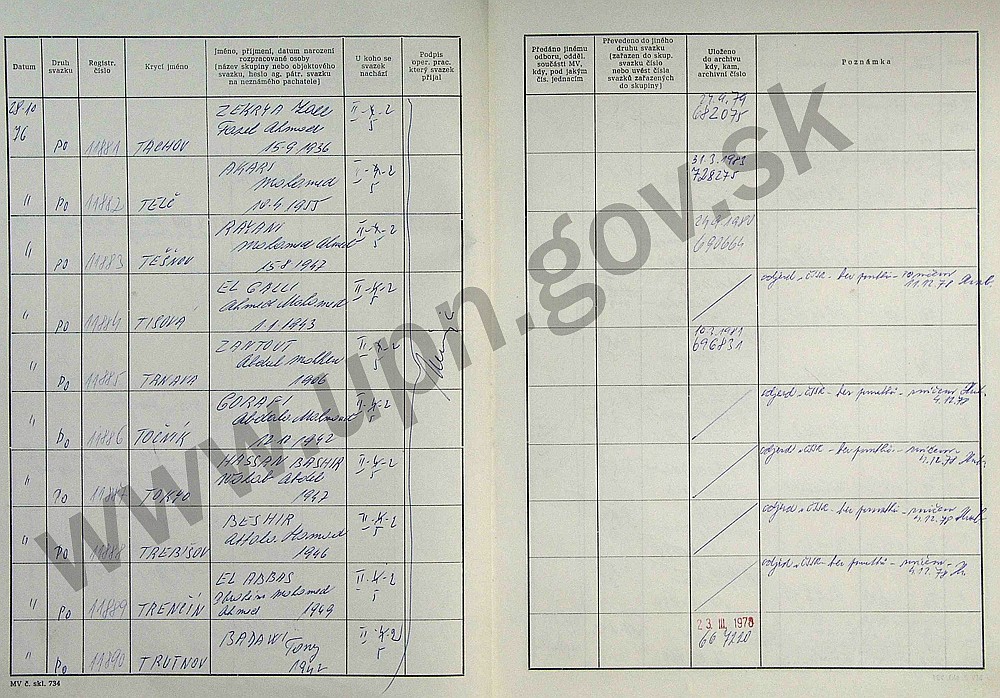 Datum
Druh
svazku
Registr.
číslo
Krycí jméno
Jméno, příjmení, datum narození
rozpracované osoby
(název skupiny nebo objektového
svazku, heslo ag. pátr. svazku
na neznámého pachatele)
U koho se
svazek
nachází
Podpis
oper. prac.
který svazek
přijal
Předáno jinému
odboru, odděl.
součásti MV,
kdy, pod jakým
čís. jednacím
Převedeno do jiného
druhu svazku
(zařazen do skup.
svazku číslo
nebo uvést čísla
svazků zařazených
do skupiny)
Uloženo
do archivu
kdy, kam,
archivní číslo
Poznámka
28.10
76
PO 11881 TACHOV
ZEKRYA
Fasel Ahmed
15.9.1936
II-4-2
5
27.9.79
682075
" PO 11882 TELČ
AKARI
Mohamed
10.4.1955
5
31.3.1983
728275
" PO 11883 TĚŠNOV
RAYANI
Mohamed Ahmed
15.8.1947
II-4-2
5
24.9.1980
690664
" PO 11884 TISOVÁ
EL GALLI
Ahmed Mohamed
1.1.1943
II-4-2
5
odjezd z ČSSR - bez poznatků -
11.12.78
" PO 11885 TRNAVA
ZANTOUT
Abdel
1966
II-4-2
5
10.3.1981
696831
" PO 11886 TOČNÍK
GORAFI
1942
II-4-2
odjezd z ČSSR - bez poznatků - zničen
4.12.78
" PO 11887 TOKYO
HASSAN BASHIR
Wahab Abdel
1947
II-4-2
5
odjezd z ČSSR - bez poznatků - zničen
4.12.78
" PO 11888 TREBIŠOV
BESHIR
1946
II-4-2
5
odjezd z ČSSR - bez poznatků - zničen
4.12.78
" PO 11889 TRENČÍN
EL ABBAS
Ibrahim Mohamed
Ahmed 1949
II-4-2
5
odjezd z ČSSR - bez poznatků - zničen
4.12.78
" PO 11890 TRUTNOV
BADAWI
Tony
1942
II-4-2
5
23. III. 1978
667220
MV č. skl. 734
www.upn.gov.sk